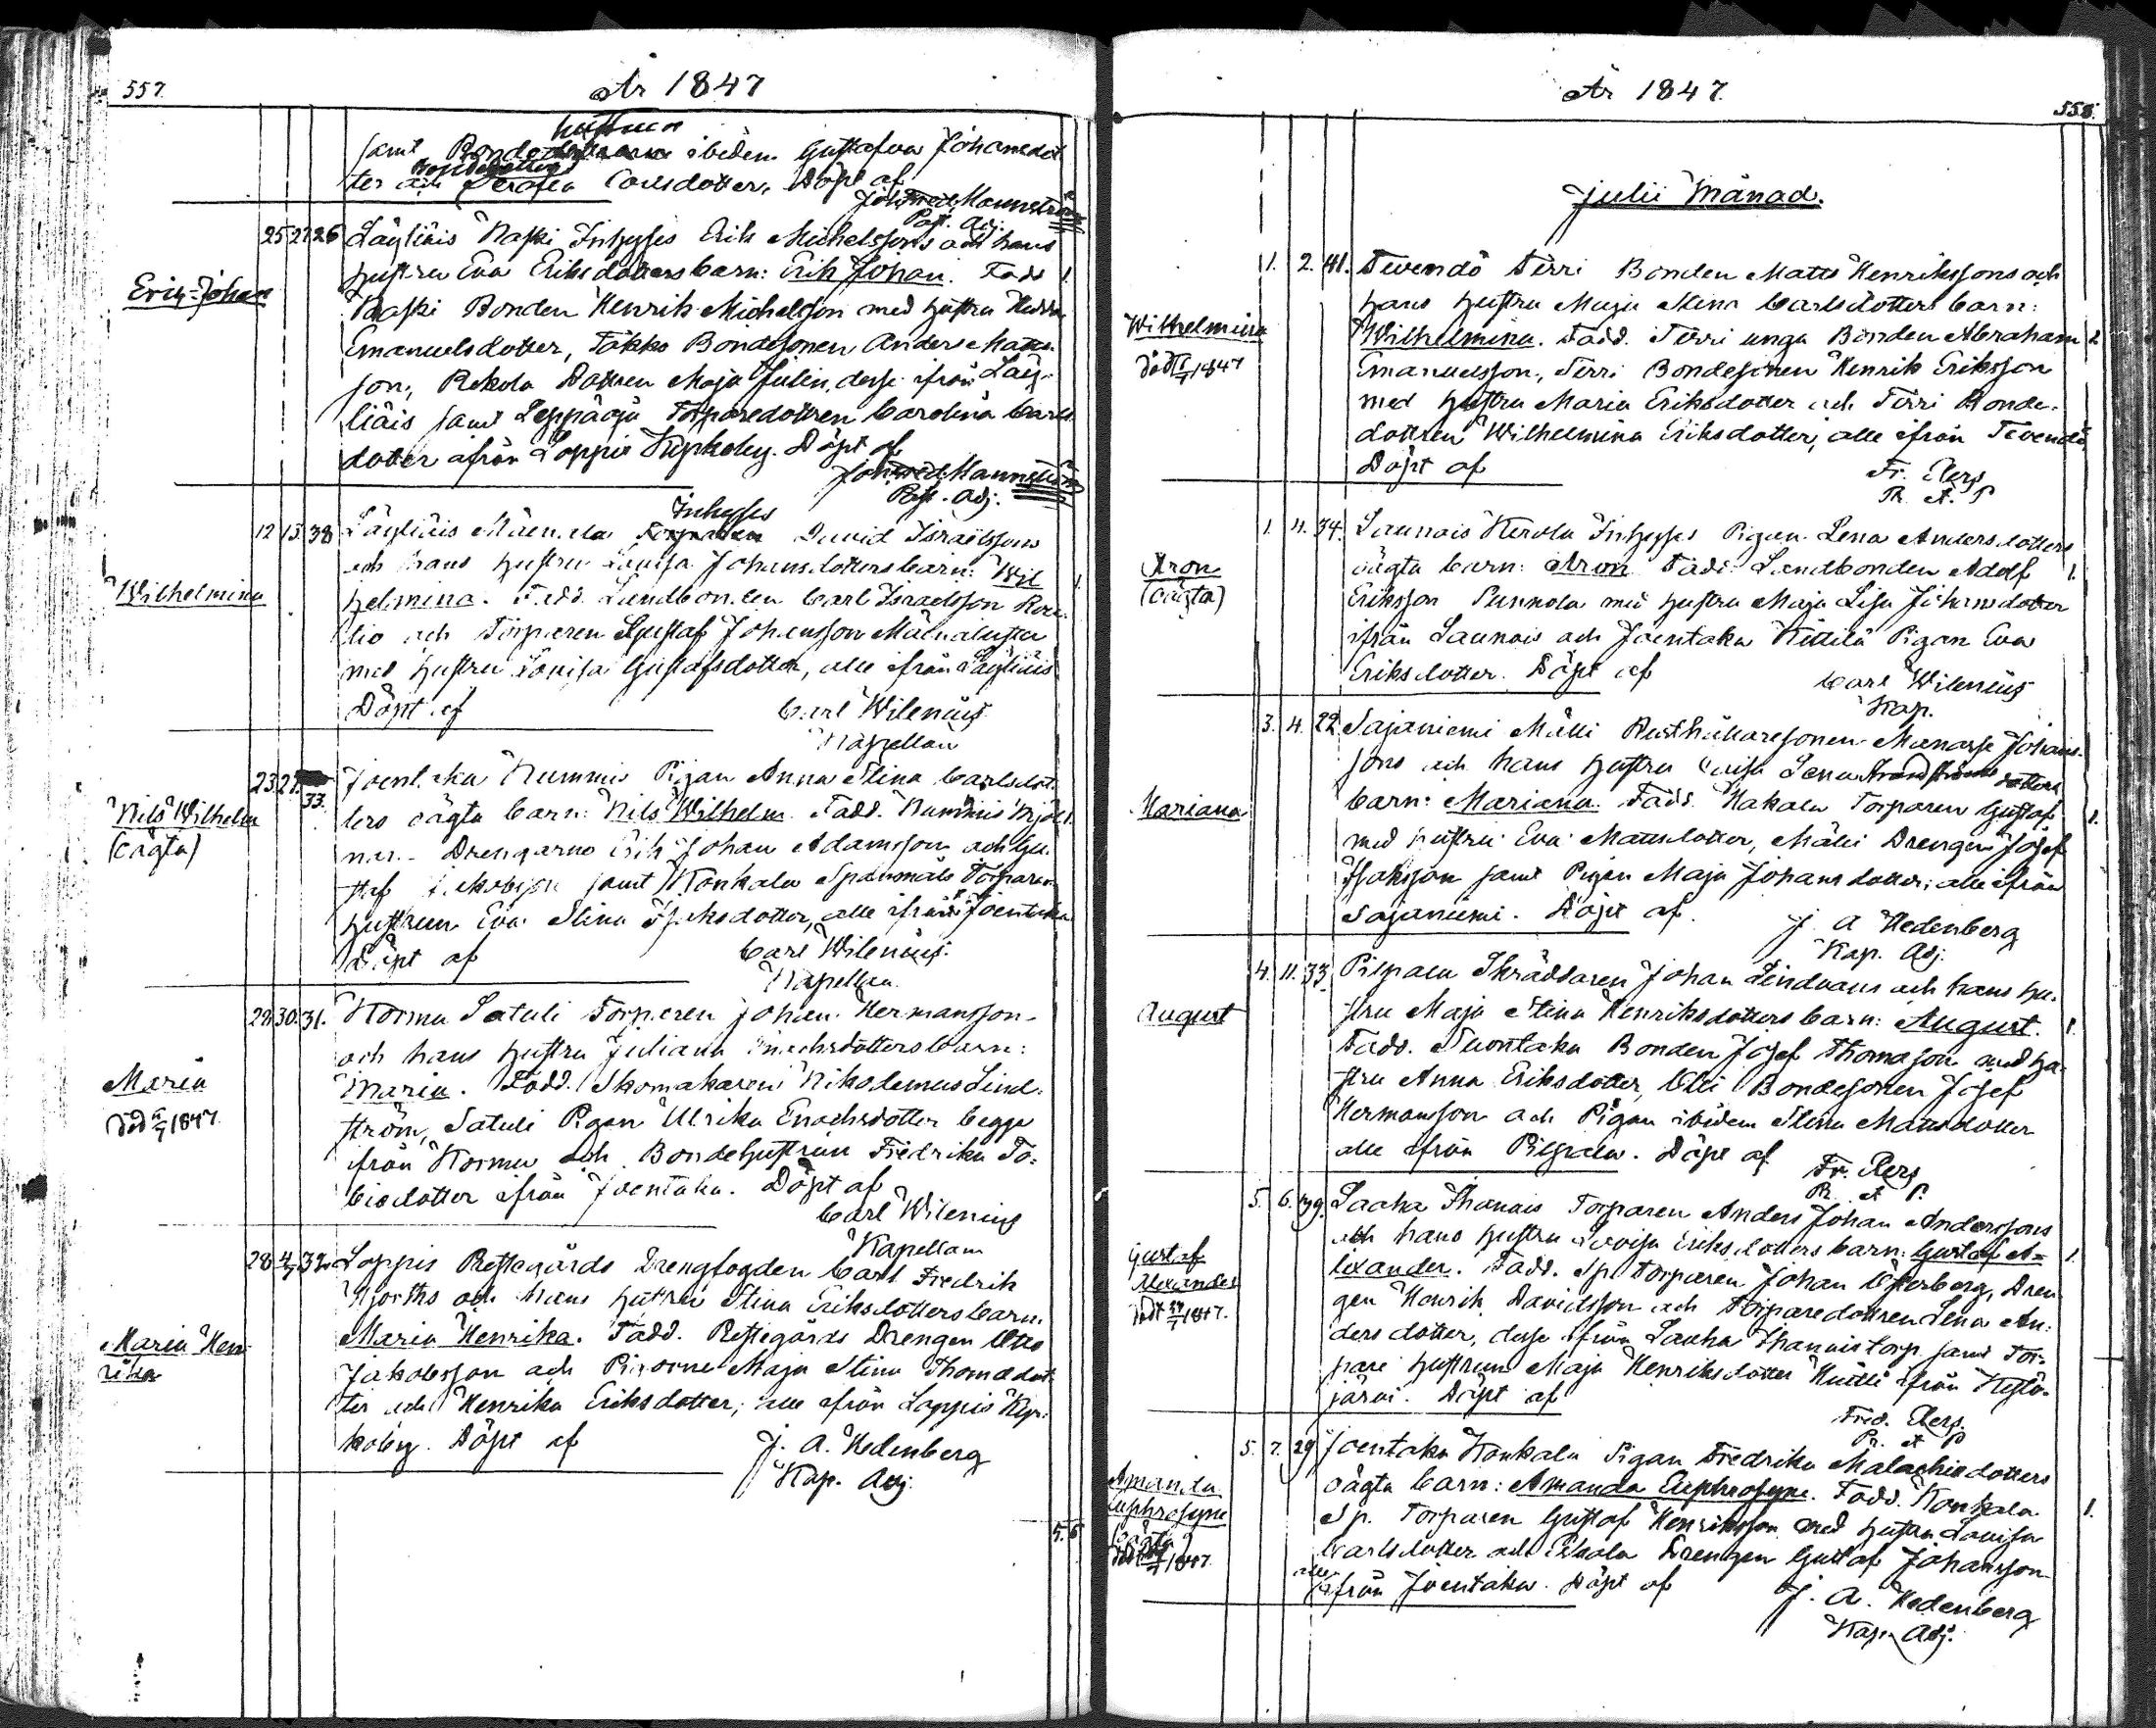 557.
År 1847
hustrun
samt Bonde ibidem Gustafva Johansdot
ter och Serafia Carlsdotter, Döpt af
Joh Fred. Mannström
Past. Adj.
Erik Johan
25 27 26 Läyliäis Raski Inhyses Erik Michelssons och hans
hustru Eva Eriksdotters barn: Erik Johan. Fadd 1.
Raski Bonden Henrik Michelsson med hustru Hedda
Emanuelsdotter, Tåkko Bondesonen Anders Matts
son, Rekola Dottren Maja Julin, desse ifrån Läy-
liäis samt Leppäoja Torparedottren Carolina Carls
dotter ifrån Loppis Kyrkoby. Döpt af
Joh Fred. Mannström
Past. Adj.
Wilhelmina
Inhyses
12 13 38 Läyliäis Mäenala David Israelssons
och hans hustru Lovisa Johansdotters barn: Wil 1.
helmina. Fadd. Landbonden Carl Israelsson
tio och Torparen Gustaf Johansson
med hustru Lovisa Gustafsdotter, alle ifrån Läyliäis
Döpt af Carl Wilenius
Kapellan
Nils Wilhelm
(oägta)
23 27. 33. Joentaka Nummis Pigan Anna Stina Carlsdot
ters oägta barn: Nils Wilhelm. Fadd. Nummis
Drengarne Erik Johan Adamsson och Gu
staf Jakobsson samt Konkala Spanmåls Torpare
hustrun Eva Stina Isaksdotter, alle ifrån Joentaka
Döpt af Carl Wilenius.
Kapellan.
Maria
död 1847.
29 30. 31. Kormu Satuli Torparen Johan Hermansson
och hans hustru Juliana Enochsdotters barn:
Maria. Fadd. Skomakaren Nikodemus Lind-
ström, Satuli Pigan Ulrika Enochsdotter begge
ifrån Kormu och Bondehustrun Fredrika To-
biedotter ifrån Joentaka. Döpt af
Carl Wilenius
Kapellan
Maria Hen
rika
28 4/7 32. Loppis Prestegårds Drengfogden Carl Fredrik
Hjorths och hans hustru Stina Eriksdotters barn.
Maria Henrika. Fadd. Prestegårds Drengen Otto
Jakobsson och Pigorne Maja Stina Thomsdot
ter och Henrika Eriksdotter, alle ifrån Loppis Kyr-
koby. Döpt af J. A. Hedenberg
Kap. Adj.
5. 6
År 1847.
558.
Julii Månad.
Wilhelmina
död 1847
1. 2. 41. Tevendö Terri Bonden Matts Henrikssons och
hans hustru Maja Stina Carlsdotters barn:
Wilhelmina. Fadd. Terri unga Bonden Abraham 2
Emanuelsson, Terri Bondesonen Henrik Eriksson
med hustru Maria Eriksdotter och Terri Bonde-
dottren Wilhelmina Eriksdotter, alle ifrån Tevendö
Döpt af Fr. Elers
P. et P
Aron
(oägta)
1. 11. 34. Launois Kerola Inhyses Pigan Lena Andersdotters
oägta barn: Aron Fadd. Landbonden Adolf 1.
Eriksson Punnola med hustru Maja Lisa Johansdotter
ifrån Launois och Joentaka Kittilä Pigan Eva
Eriksdotter. Döpt af Carl Wilenius
Kap.
Mariana
3. 4. 22 Sajaniemi Mälli Rusthållaresonen Manasse Johans-
sons och hans hustru Lovisa Lena
barn: Mariana. Fadd. Hakala Torparen Gustaf 1.
med hustru Eva Mattsdotter, Mälli Drengen Josef
Isaksson samt Pigan Maja Johansdotter, alle ifrån
Sajaniemi. Döpt af J. A Hedenberg
Kap. Adj.
August
4. 11. 33. Pilpala Skräddaren Johan Lindvans och hans hu-
stru Maja Stina Henriksdotters barn: August. 1.
Fadd. Suontaka Bonden Josef Thomasson med hu-
stru Anna Eriksdotter, Olli Bondesonen Josef
Hermansson och Pigan ibidem Stina Mattsdotter
alle ifrån Pilpala. Döpt af Fr. Elers
P. et P.
Gustaf
Alexander
död 1847.
5. 6. 39. Laaka Ihanais Torparen Anders Johan Anderssons
och hans hustru Lovisa Eriksdotters barn: Gustaf A- 1.
lexander. Fadd. Sp. Torparen Johan Österberg, Dren
gen Henrik Davidsson och Torparedottren Lena An-
dersdotter, desse ifrån Laaka Ihanais torp samt Tor-
pare hustrun Maja Henriksdotter ifrån
järvi. Döpt af
Fred. Elers.
P. et P
Amanda
Euphrosyne
(oägta)
1847.
5. 7. 29 Joentaka Konkala Pigan Fredrika Malachiedotters
oägta barn: Amanda Euphrosyne. Fadd. Konkala
Sp. Torparen Gustaf Henriksson med hustru Lovisa 1.
Carlsdotter och Drengen Gustaf Johansson
alle ifrån Joentaka. Döpt af J. A. Hedenberg
Kap. Adj.